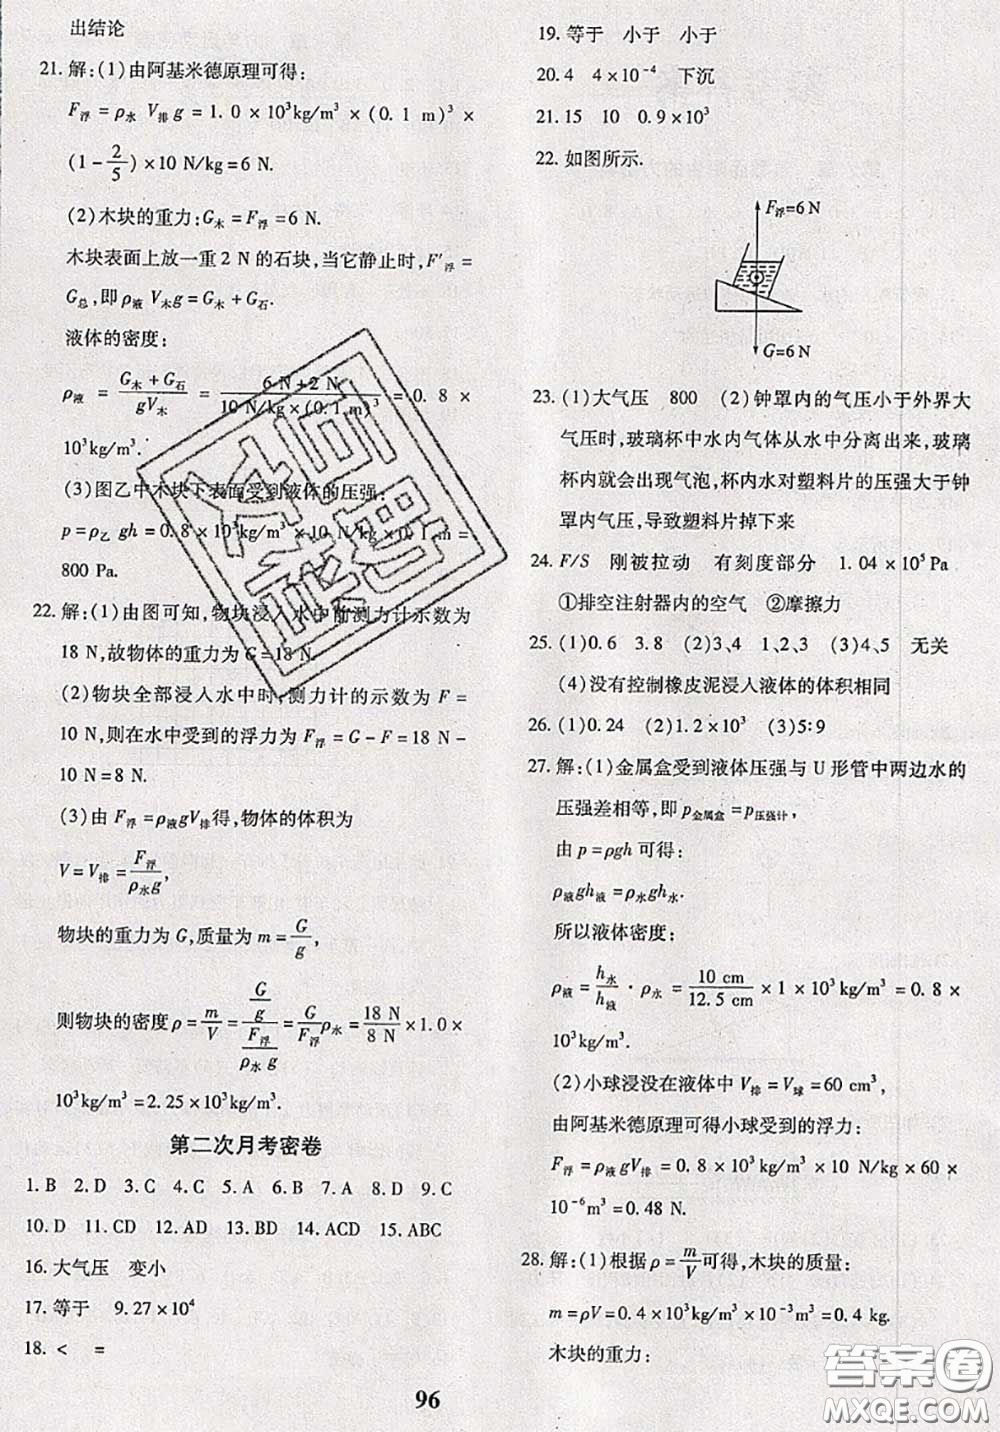 出结论
21. 解:(1)由阿基米德原理可得:
F浮 = ρ水 V排g = 1.0 × 10³kg/m³ × (0.1 m)³ ×
(1 - 2/5) × 10 N/kg = 6 N.
(2)木块的重力:G木 = F浮 = 6 N.
木块表面上放一重 2 N 的石块,当它静止时,F′浮 =
G总,即 ρ液 V木g = G木 + G石.
液体的密度:
ρ液 = (G木 + G石)/(gV木) = (6 N + 2 N)/(10 N/kg × (0.1 m)³) = 0.8 ×
10³kg/m³.
(3)图乙中木块下表面受到液体的压强:
p = ρ乙 gh = 0.8 × 10³kg/m³ × 10 N/kg × 0.1 m =
800 Pa.
22. 解:(1)由图可知,物块浸入水中前测力计示数为
18 N,故物体的重力为 G = 18 N.
(2)物块全部浸入水中时,测力计的示数为 F =
10 N,则在水中受到的浮力为 F浮 = G - F = 18 N -
10 N = 8 N.
(3)由 F浮 = ρ液gV排得,物体的体积为
V = V排 = F浮/(ρ水g),
物块的重力为 G,质量为 m = G/g,
则物块的密度 ρ = m/V = (G/g)/(F浮/(ρ水 g)) = (G/F浮)ρ水 = (18 N/8 N) × 1.0 ×
10³kg/m³ = 2.25 × 10³kg/m³.
第二次月考密卷
1. B 2. D 3. C 4. C 5. A 6. B 7. A 8. D 9. C
10. D 11. CD 12. AD 13. BD 14. ACD 15. ABC
16. 大气压 变小
17. 等于 9.27 × 10⁴
18. < =
19. 等于 小于 小于
20. 4 4 × 10⁻⁴ 下沉
21. 15 10 0.9 × 10³
22. 如图所示.
F浮=6 N
G=6 N
23. (1)大气压 800 (2)钟罩内的气压小于外界大
气压时,玻璃杯中水内气体从水中分离出来,玻璃
杯内就会出现气泡,杯内水对塑料片的压强大于钟
罩内气压,导致塑料片掉下来
24. F/S 刚被拉动 有刻度部分 1.04 × 10⁵Pa
①排空注射器内的空气 ②摩擦力
25. (1)0.6 3.8 (2)3、4 1、2、3 (3)4、5 无关
(4)没有控制橡皮泥浸入液体的体积相同
26. (1)0.24 (2)1.2 × 10³ (3)5:9
27. 解:(1)金属盒受到液体压强与 U 形管中两边水的
压强差相等,即 p金属盒 = p压强计,
由 p = ρgh 可得:
ρ液gh液 = ρ水gh水.
所以液体密度:
ρ液 = h水/h液 · ρ水 = 10 cm/12.5 cm × 1 × 10³kg/m³ = 0.8 ×
10³kg/m³.
(2)小球浸没在液体中 V排 = V球 = 60 cm³,
由阿基米德原理可得小球受到的浮力:
F浮 = ρ液gV排 = 0.8 × 10³kg/m³ × 10 N/kg × 60 ×
10⁻⁶m³ = 0.48 N.
28. 解:(1)根据 ρ = m/V 可得,木块的质量:
m = ρV = 0.4 × 10³kg/m³ × 10⁻³m³ = 0.4 kg.
木块的重力:
96
答案圈
MXQE.COM